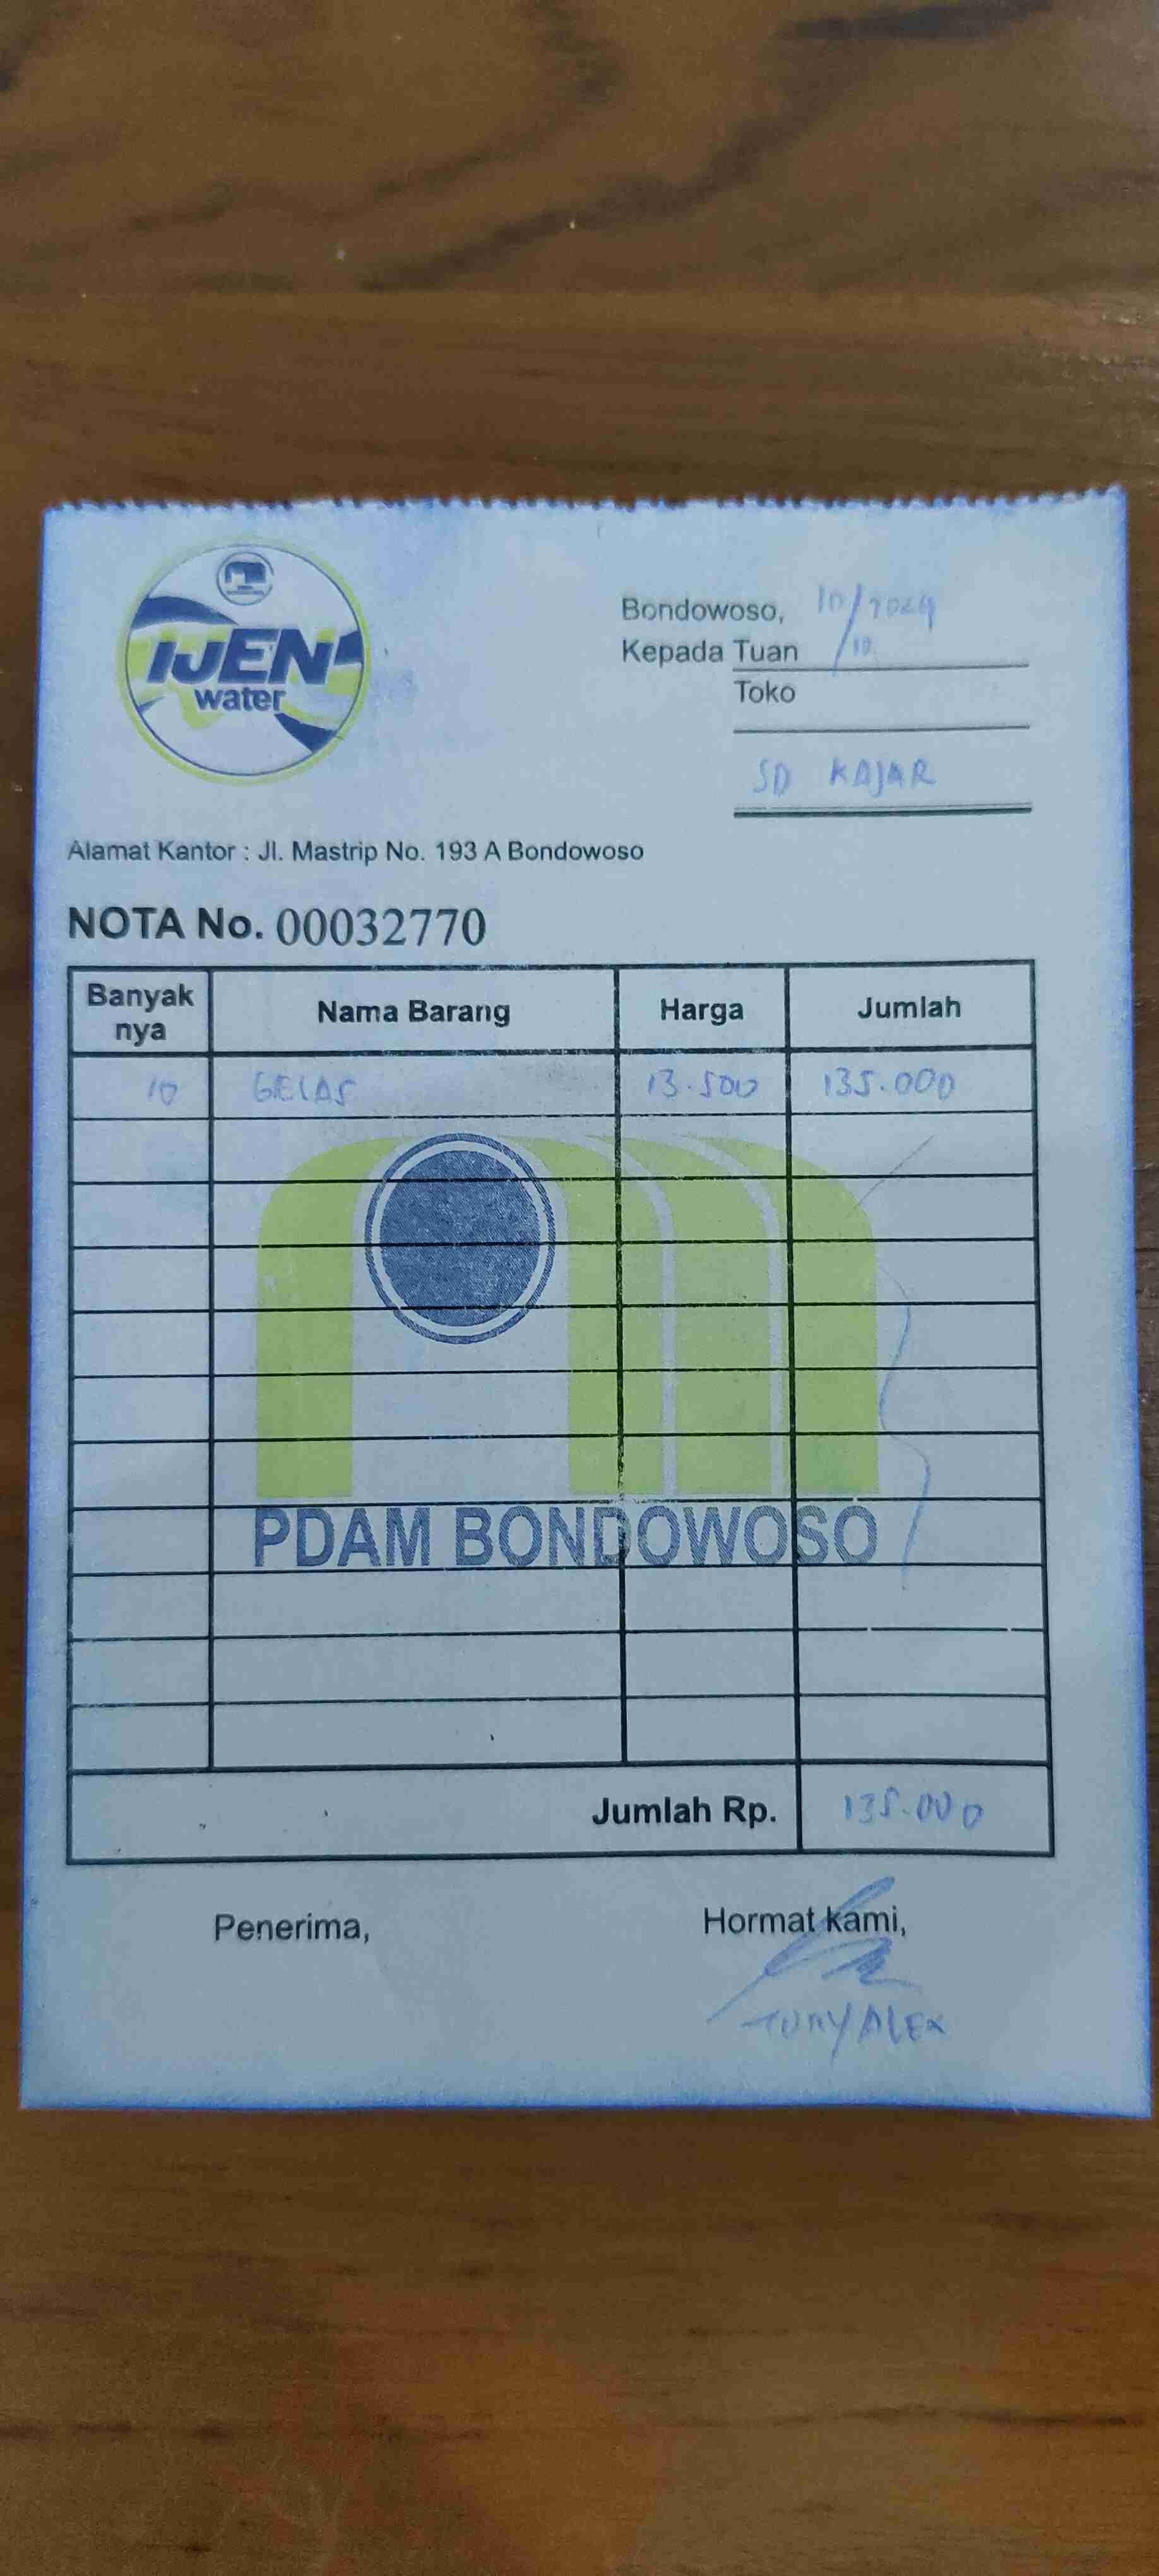 IJEN
water
Bondowoso, 10/10 2024
Kepada Tuan
Toko
SD KAJAR
Alamat Kantor : Jl. Mastrip No. 193 A Bondowoso
NOTA No. 00032770
Banyak nya Nama Barang Harga Jumlah
10 GELAS 13.500 135.000
PDAM BONDOWOSO
Jumlah Rp. 135.000
Penerima, Hormat kami,
ALEX